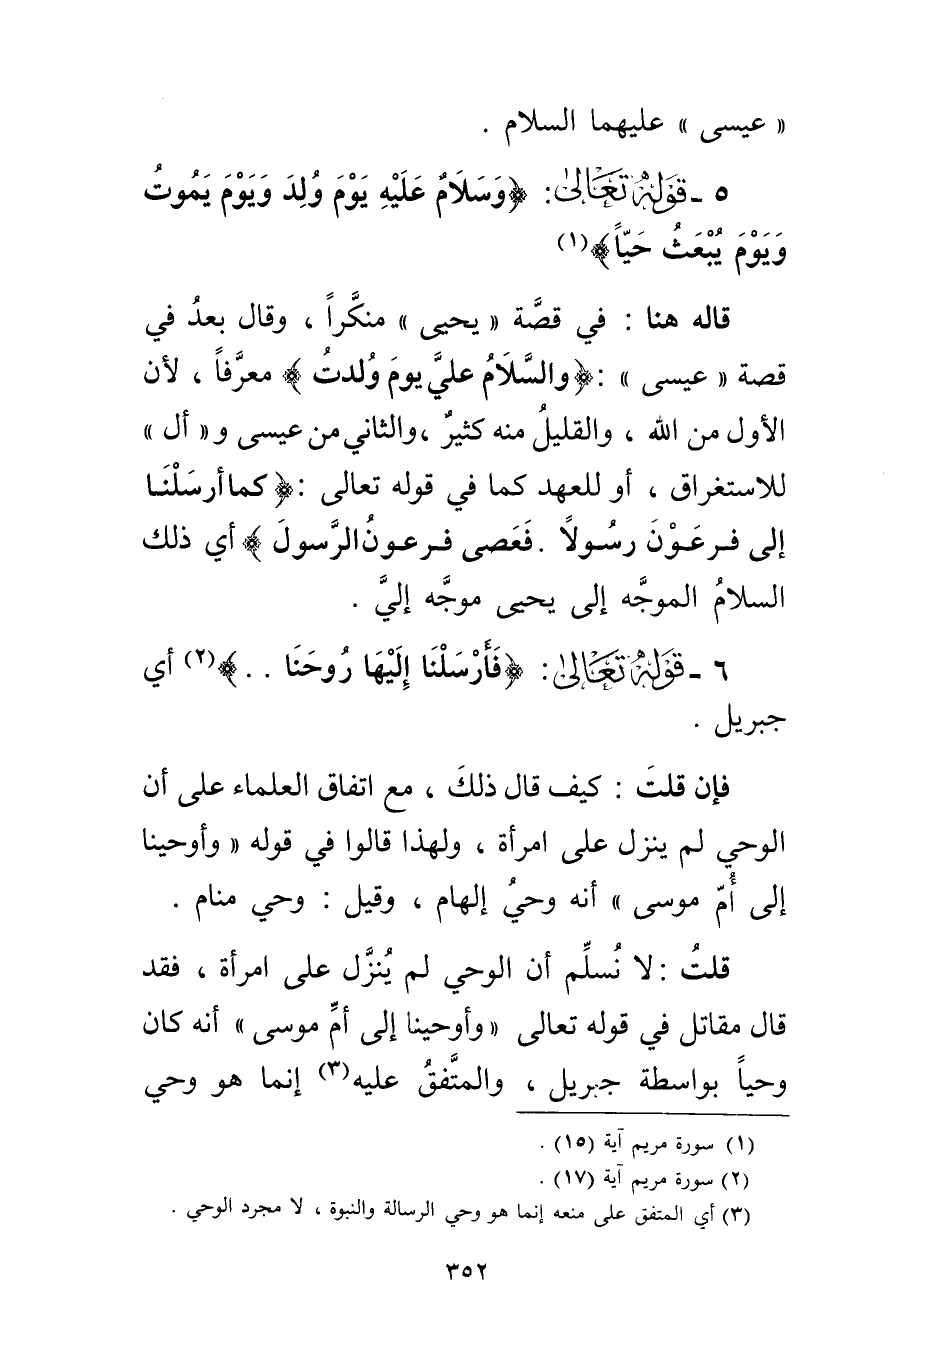 « عيسى » عليهما السلام .
٥ ـ قَوْلُهُ تَعَالىٰ : ﴿وَسَلَامٌ عَلَيْهِ يَوْمَ وُلِدَ وَيَوْمَ يَمُوتُ
وَيَوْمَ يُبْعَثُ حَيّاً﴾(١)
قاله هنا : في قصَّة « يحيى » منكَّراً ، وقال بعدُ في
قصة « عيسى » :﴿والسَّلَامُ عليَّ يومَ وُلدتُ ﴾ معرَّفاً ، لأن
الأول من الله ، والقليلُ منه كثيرٌ ،والثاني من عيسى و« أل »
للاستغراق ، أو للعهد كما في قوله تعالى :﴿ كما أرسَلْنَا
إلى فرعَوْنَ رسُولًا .فَعَصى فرعونُ الرَّسولَ ﴾ أي ذلك
السلامُ الموجَّه إلى يحيى موجَّه إليَّ .
٦ ـ قَوْلُهُ تَعَالىٰ : ﴿فَأَرْسَلْنَا إِلَيْهَا رُوحَنَا . .﴾(٢) أي
جبريل .
فإن قلتَ : كيف قال ذلكَ ، مع اتفاق العلماء على أن
الوحي لم ينزل على امرأة ، ولهذا قالوا في قوله « وأوحينا
إلى أُمّ موسى » أنه وحيُ إلهام ، وقيل : وحي منام .
قلتُ :لا نُسلِّم أن الوحي لم يُنزَّل على امرأة ، فقد
قال مقاتل في قوله تعالى «وأوحينا إلى أمِّ موسى» أنه كان
وحياً بواسطة جبريل ، والمتَّفقُ عليه(٣) إنما هو وحي
(١) سورة مريم آية (١٥) .
(٢) سورة مريم آية (١٧) .
(٣) أي المتفق على منعه إنما هو وحي الرسالة والنبوة ، لا مجرد الوحي .
٣٥٢